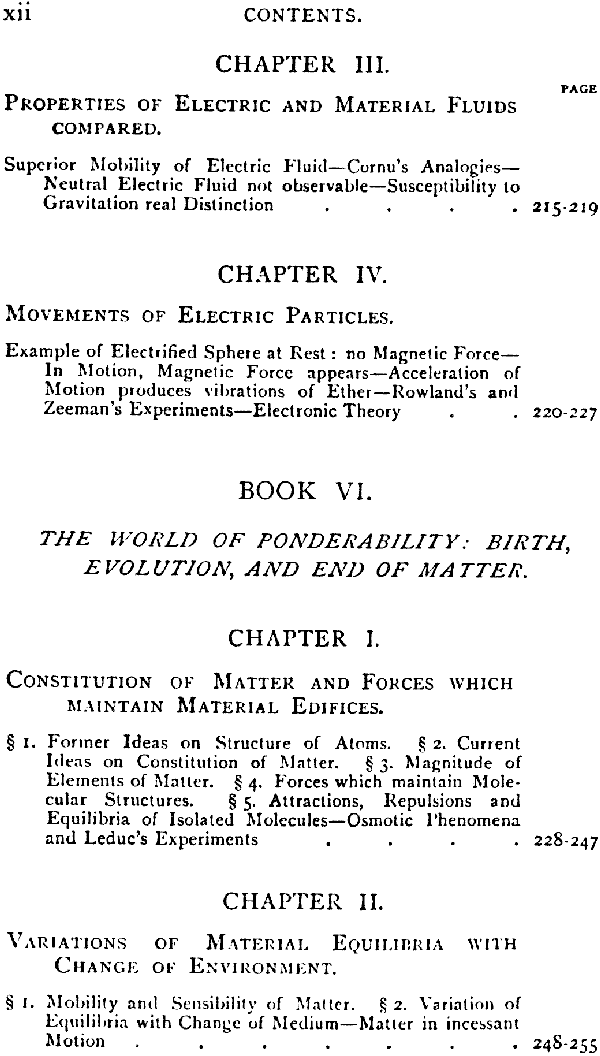 xii CONTENTS.
CHAPTER III.
PAGE
PROPERTIES OF ELECTRIC AND MATERIAL FLUIDS
COMPARED.
Superior Mobility of Electric Fluid—Cornu's Analogies—
Neutral Electric Fluid not observable—Susceptibility to
Gravitation real Distinction . . . . 215-219
CHAPTER IV.
MOVEMENTS OF ELECTRIC PARTICLES.
Example of Electrified Sphere at Rest : no Magnetic Force—
In Motion, Magnetic Force appears—Acceleration of
Motion produces vibrations of Ether—Rowland's and
Zeeman's Experiments—Electronic Theory . . 220-227
BOOK VI.
THE WORLD OF PONDERABILITY: BIRTH,
EVOLUTION, AND END OF MATTER.
CHAPTER I.
CONSTITUTION OF MATTER AND FORCES WHICH
MAINTAIN MATERIAL EDIFICES.
§ 1. Former Ideas on Structure of Atoms. § 2. Current
Ideas on Constitution of Matter. § 3. Magnitude of
Elements of Matter. § 4. Forces which maintain Mole-
cular Structures. § 5. Attractions, Repulsions and
Equilibria of Isolated Molecules—Osmotic Phenomena
and Leduc's Experiments . . . . 228-247
CHAPTER II.
VARIATIONS OF MATERIAL EQUILIBRIA WITH
CHANGE OF ENVIRONMENT.
§ 1. Mobility and Sensibility of Matter. § 2. Variation of
Equilibria with Change of Medium—Matter in incessant
Motion . . . . . . . 248-255